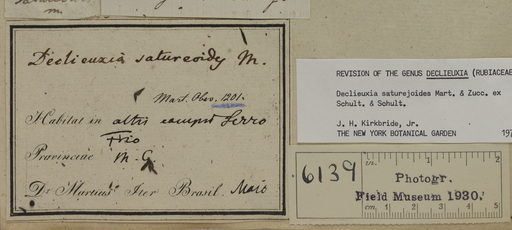 Declieuxia satureoidy M.
Mart. Obsv. 1201.
Habitat in altis campis Serro
Frio
Provinciae M. G.
Dr. Martius Iter Brasil. Maio
REVISION OF THE GENUS DECLIEUXIA (RUBIACEAE
Declieuxia saturejoides Mart. & Zucc. ex
Schult. & Schult.
J. H. Kirkbride, Jr.
THE NEW YORK BOTANICAL GARDEN 197
6139
in. 1 2
Photogr.
Field Museum 1930.
cm. 1 2 3 4 5